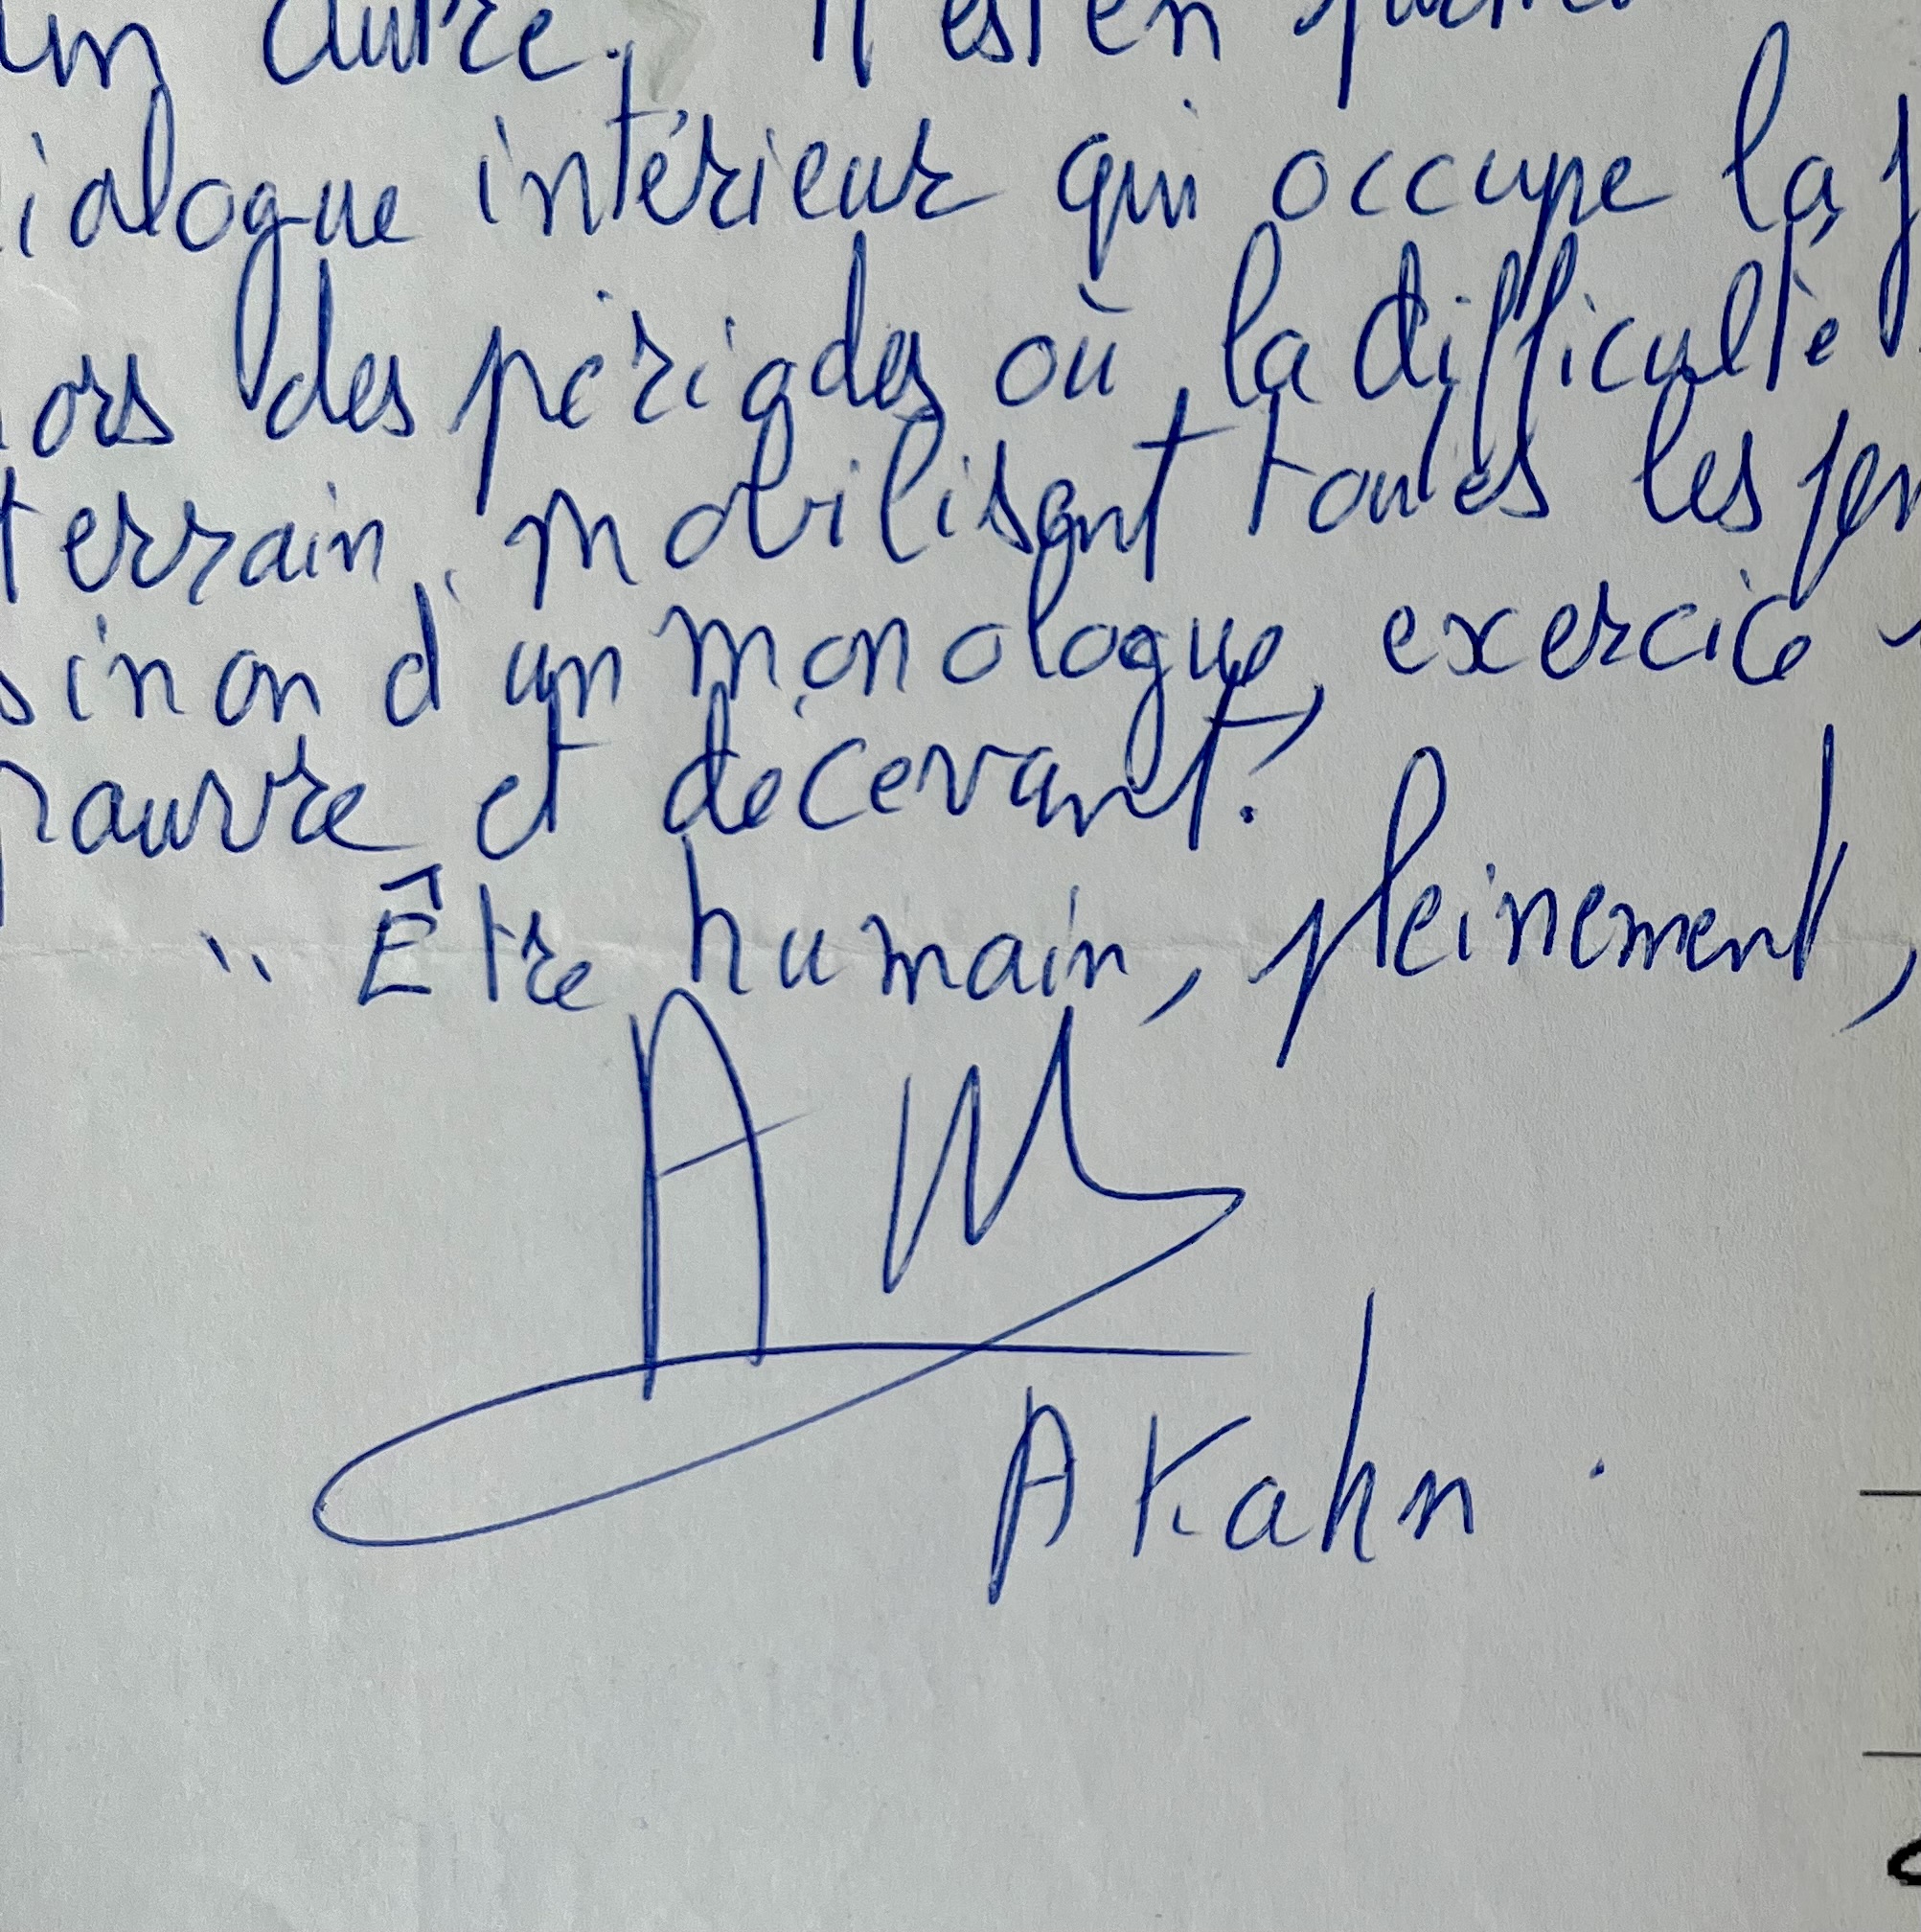 un autre. Il est en
ialogue intérieur qui occupe la
ors des périodes où la difficulté
terrain mobilisent toutes les
sinon d'un monologue, exercice
pauvre et décevant.
" Être humain, pleinement,
A Kahn.